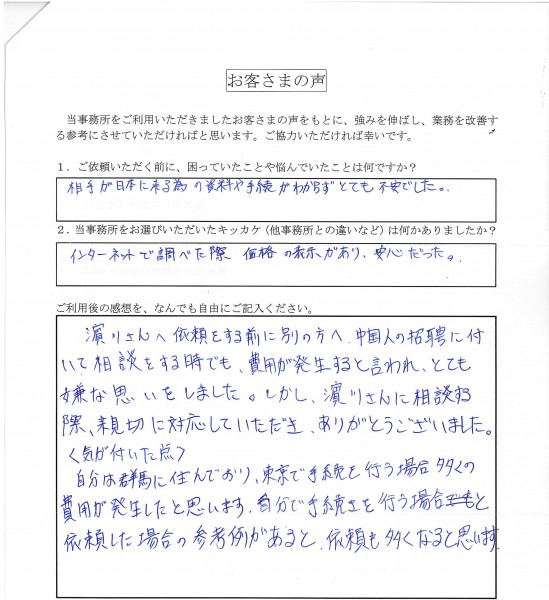 お客さまの声
当事務所をご利用いただきましたお客さまの声をもとに、強みを伸ばし、業務を改善す
る参考にさせていただければと思います。ご協力いただければ幸いです。
１．ご依頼いただく前に、困っていたことや悩んでいたことは何ですか？
相手が日本に来る為の資料や手続がわからずとても不安でした。
２．当事務所をお選びいただいたキッカケ（他事務所との違いなど）は何かありましたか？
インターネットで調べた際 価格の表示があり、安心だった。
ご利用後の感想を、なんでも自由にご記入ください。
濱川さんへ依頼をする前に別の方へ、中国人の招聘に付
いて相談をする時でも、費用が発生すると言われ、とても
嫌な思いをしました。しかし、濱川さんに相談する
際、親切に対応していただき、ありがとうございました。
〈気が付いた点〉
自分は群馬に住んでおり、東京で手続を行う場合多くの
費用が発生したと思います。自分で手続きを行う場合でもと
依頼した場合の参考例があると、依頼も多くなると思います